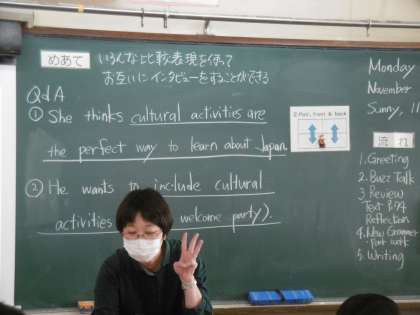 めあて いろんな比較表現を使って
お互いにインタビューをすることができる
Q&A
① She thinks cultural activities are
the perfect way to learn about Japan.
② He wants to include cultural
activities welcome party).
Pair, front & back
Monday
November
Sunny,
流れ
1. Greeting
2. Buzz Talk
3. Review
Text P.94
Reflection
4. New Grammar
Point work
5. Writing